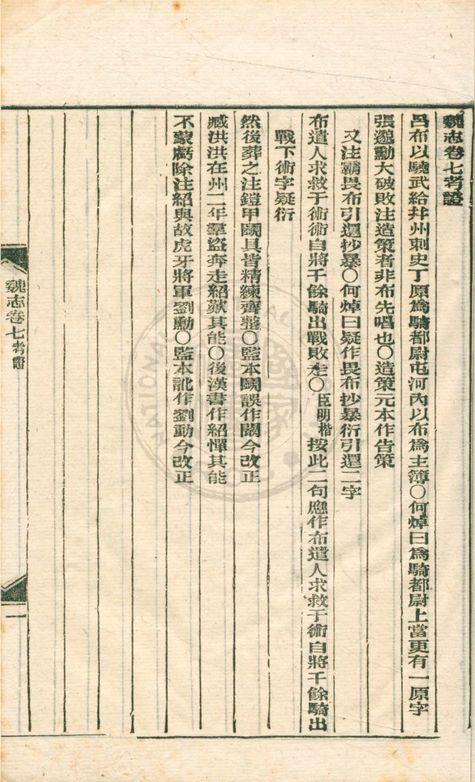 魏志卷七考證
呂布以驍武給幷州刺史丁原爲騎都尉屯河內以布爲主簿○何焯曰爲騎都尉上當更有一原字
張邈勳大破敗注造策者非布先唱也○造策元本作告策
又注霸畏布引還抄暴○何焯曰疑作畏布抄暴衍引還二字
布遣人求救于術術自將千餘騎出戰敗走○臣明楷按此二句應作布遣人求救于術自將千餘騎出
戰下術字疑衍
然後葬之注鎧甲鬭具皆精練齊整○監本鬭誤作闘今改正
臧洪洪在州二年羣盜奔走紹歎其能○後漢書作紹憚其能
不蒙虧除注紹與故虎牙將軍劉勳○監本訛作劉動今改正
魏志卷七考證